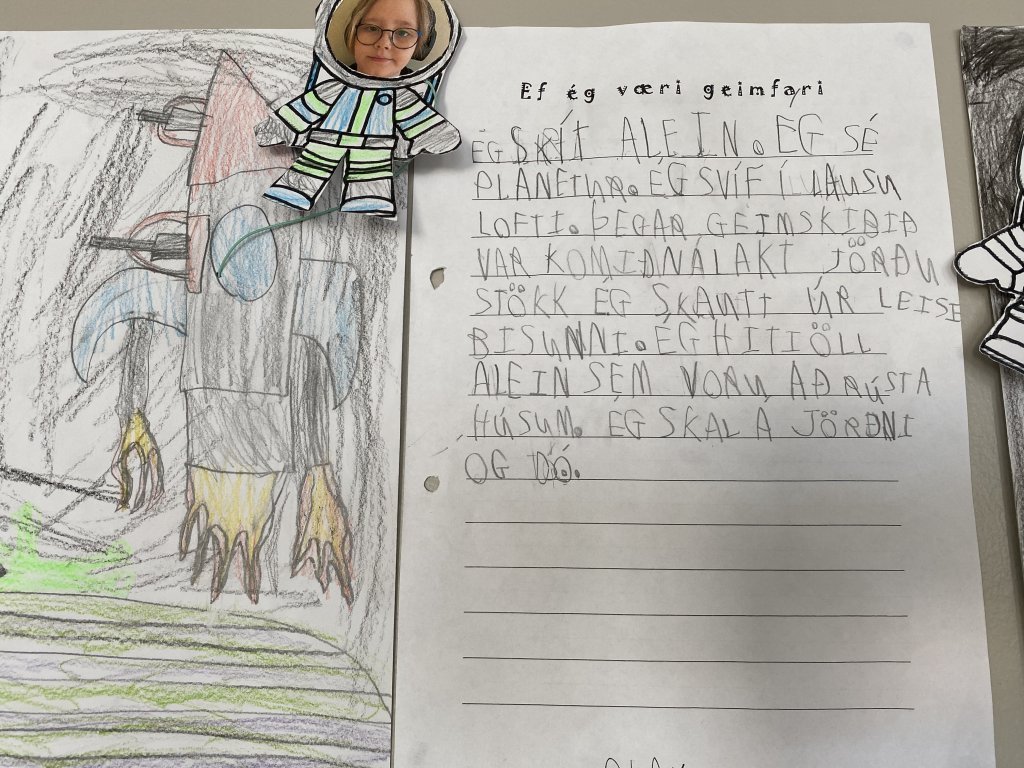 Ef ég væri geimfari
ÉG SKÍT ALEIN. EG SÉ
PLANETUR. ÉG SVÍF Í LAUSU
LOFTI. ÞEGAR GEIMSKIBIÐ
VAR KOMIÐNÁLAKT JÖRÐU
STÖKK ÉG SKAUTT ÚR LEISE
BISUNNI. ÉG HITIÖLL
ALEIN SEM VORU AÐ RÚSTA
HÚSUM. ÉG SKAL A JÖRÐNI
OG DÓ.